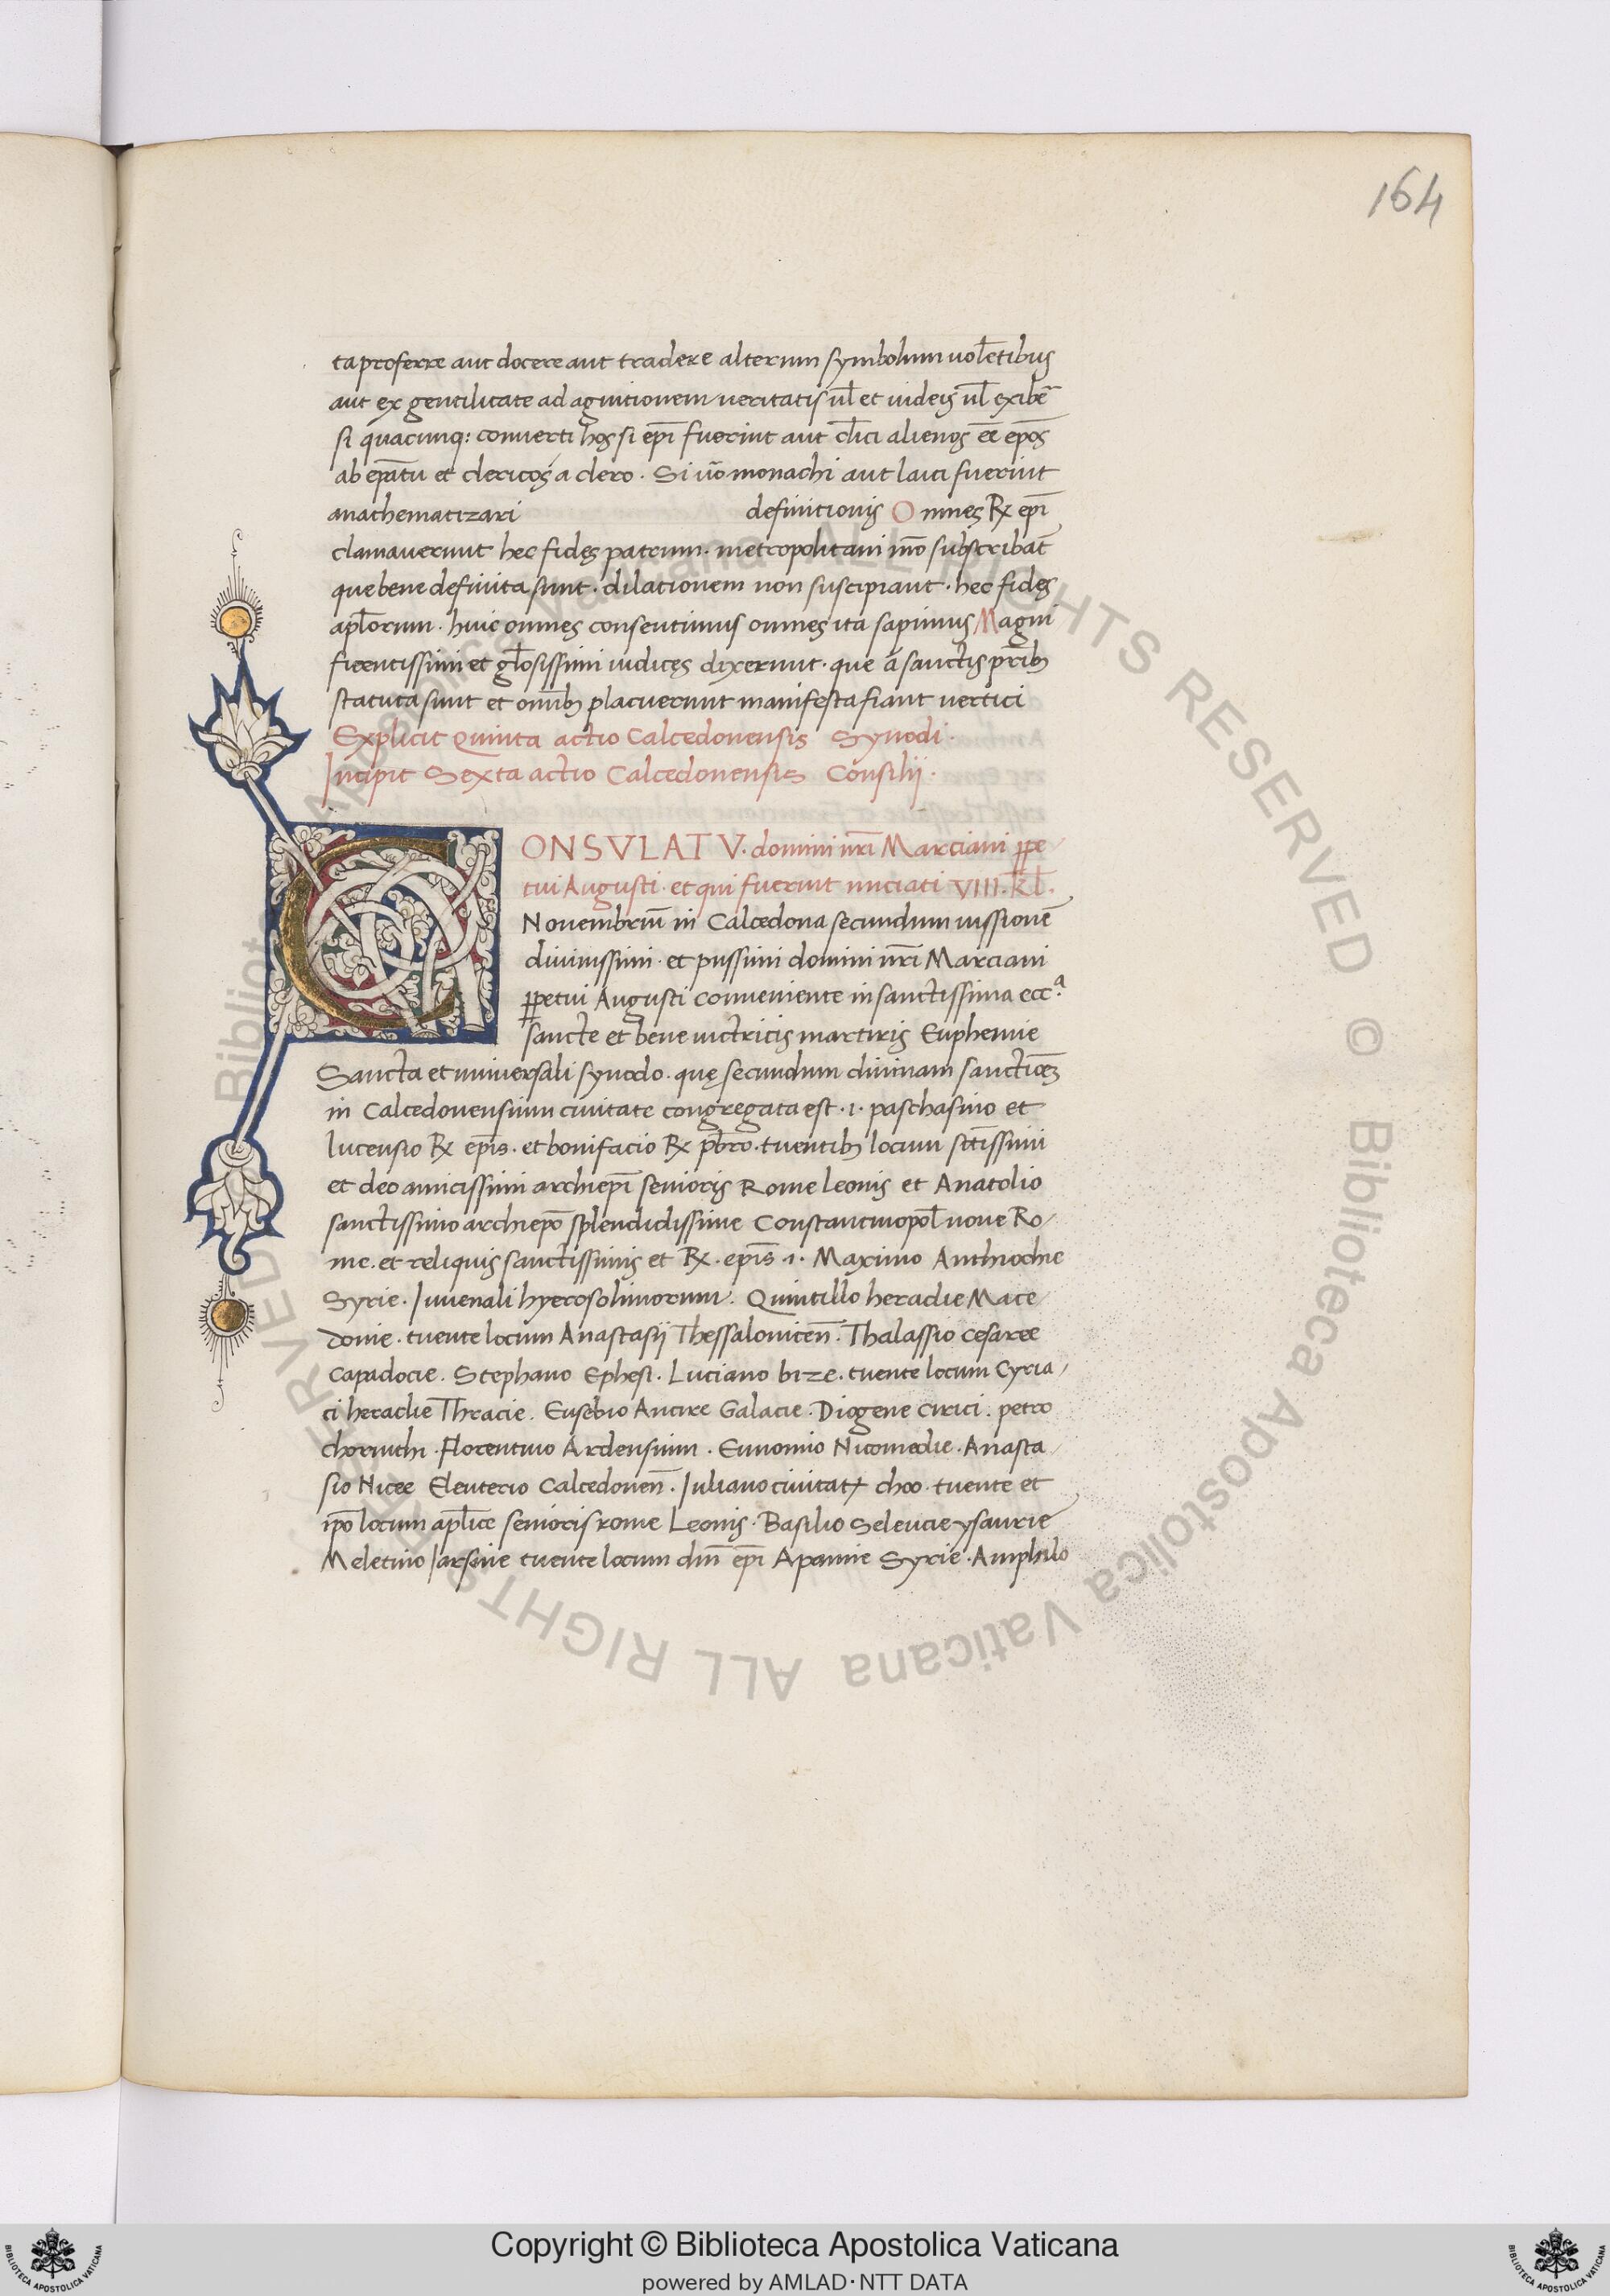 164
ta proferre aut docere aut tradere alterum symbolum uol̅etibus
aut ex gentilitate ad agnitionem ueritatis ul̅ et iudeis ul̅ exibe̅
si quacunq: conuerti hos si epi̅ fuerint aut cl̅ici alienos ee̅ epo̅s
ab epa̅tu et clericos a clero. Si uo̅ monachi aut laici fuerint
anathematizari definitionis Omnes Rx epi̅
clamauerunt hec fides patrum. metropolitani mo̅ subscriba̅t
que bene definita sunt. dilationem non suscipiant. hec fides
apl̅orum. huic omnes consentimus omnes ita sapimus Magni
ficentissimi et gl̅osissimi iudices dixerunt. que a sanctis pr̅ib;
statuta sunt et omi̅b; placuerunt manifesta fiant uertici
Explicit Quinta actio Calcedonensis Synodi.
Incipit Sexta actio Calcedonensis Consilij.
CONSVLATV. domini nr̅i Marciani ꝑpe
tui Augusti. et qui fuerint nuciati VIIII. kl̅.
Nouembriu̅ in Calcedona secundum iussione̅
diuinissimi. et piissimi domini nr̅i Marciani
ꝑpetui Augusti conueniente in sanctissima eccᵃ.
sancte et bene uictricis martiris Euphemie
Sancta et uniuersali synodo. quę secundum diuinam sanctioe̅z
in Calcedonensium ciuitate congregata est .1. paschasino et
lucensio Rx epi̅s. et bonifacio Rx pb̅ro. tuentib; locum sc̅tissimi
et deo amicissimi archiepi̅ senioris Rome leonis et Anatolio
sanctissimo archiepo̅ splendidissime Constantinopol̅ noue Ro/
me. et reliquis sanctissimis et Rx. epi̅s .1. Maximo Anthiochie
Syrie. Iuuenali hyerosolimorum. Quintillo heraclie Mace/
donie. tuente locum Anastasij Thessalonicen̅. Thalassio cesaree
Capadocie. Stephano Ephesi. Luciano bize. tuente locum Cyria/
ci heraclie Thracie. Eusebio Ancire Galacie. Diogene cirici. petro
chorinthi. Florentino Ardensium. Eunomio Nicomedie. Anasta/
sio Nicee Eleuterio Calcedonen̅. Iuliano ciuitatꝭ choo. tuente et
ipo̅ locum apl̅ice senioris rome Leonis. Basilio Seleucie ysaurie
Meletino larsine tuente locum dm̅ epi̅ Apamie Syrie. Amphilo
Biblioteca Apostolica Vaticana ALL RIGHTS RESERVED © Biblioteca Apostolica Vaticana ALL RIGHTS RESERVED
Copyright © Biblioteca Apostolica Vaticana
powered by AMLAD·NTT DATA
BIBLIOTECA APOSTOLICA VATICANA
BIBLIOTECA APOSTOLICA VATICANA